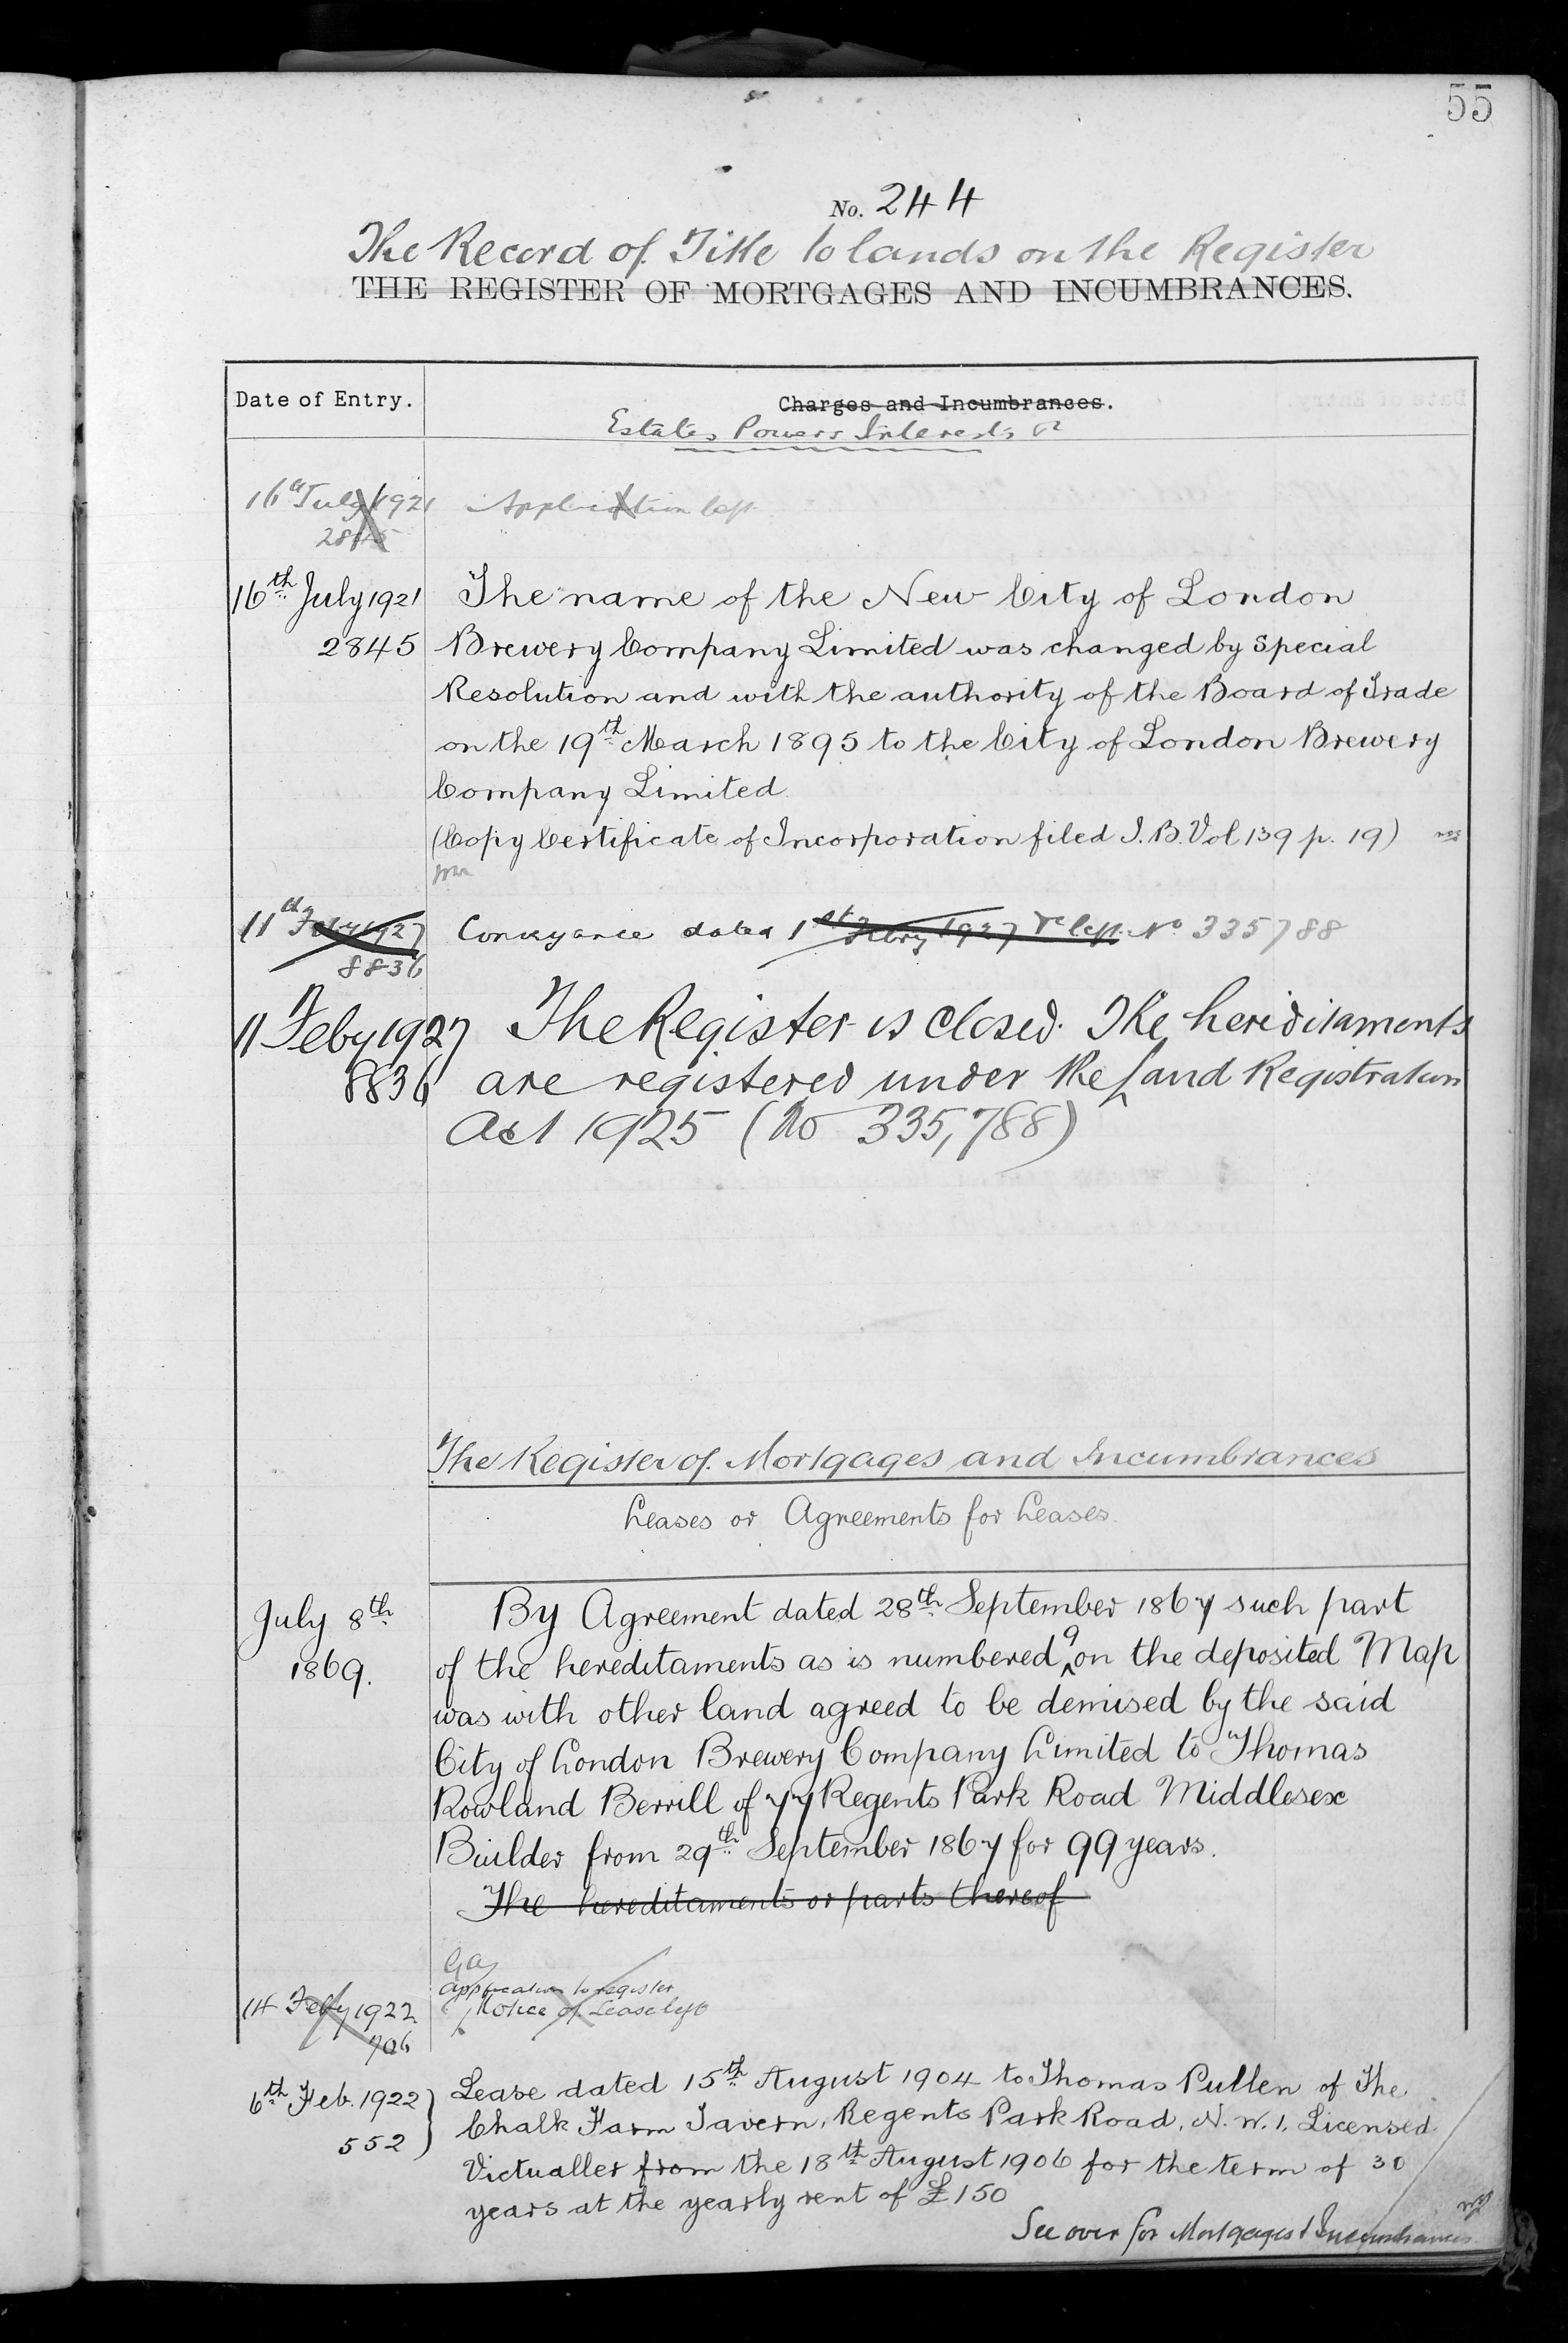 55
No. 244
The Record of Title to lands on the Register
THE REGISTER OF MORTGAGES AND INCUMBRANCES.
Date of Entry.
Charges and Incumbrances.
Estates Powers Interests &c
16th July 1921 Application left
2845
16th July 1921 The name of the New City of London
2845 Brewery Company Limited was changed by Special
Resolution and with the authority of the Board of Trade
on the 19th March 1895 to the City of London Brewery
Company Limited
(Copy Certificate of Incorporation filed I.B. Vol 139 p. 19)
11th Feby 1927 Conveyance dated 1st Febry 1927 &c left No 335788
8836
11 Feby 1927 The Register is closed. The hereditaments
8836 are registered under the Land Registration
Act 1925 (No 335,788)
The Register of Mortgages and Incumbrances
Leases or Agreements for Leases.
July 8th By Agreement dated 28th September 1867 such part
1869. of the hereditaments as is numbered 9 on the deposited Map
was with other land agreed to be demised by the said
City of London Brewery Company Limited to Thomas
Rowland Berrill of 77 Regents Park Road Middlesex
Builder from 29th September 1867 for 99 years.
The hereditaments or parts thereof
application to register
14 Feby 1922 Notice of Lease left
706
6th Feb. 1922 Lease dated 15th August 1904 to Thomas Pullen of The
552 Chalk Farm Tavern, Regents Park Road, N.W.1, Licensed
Victualler from the 18th August 1906 for the term of 30
years at the yearly rent of £150
See over for Mortgages & Incumbrances